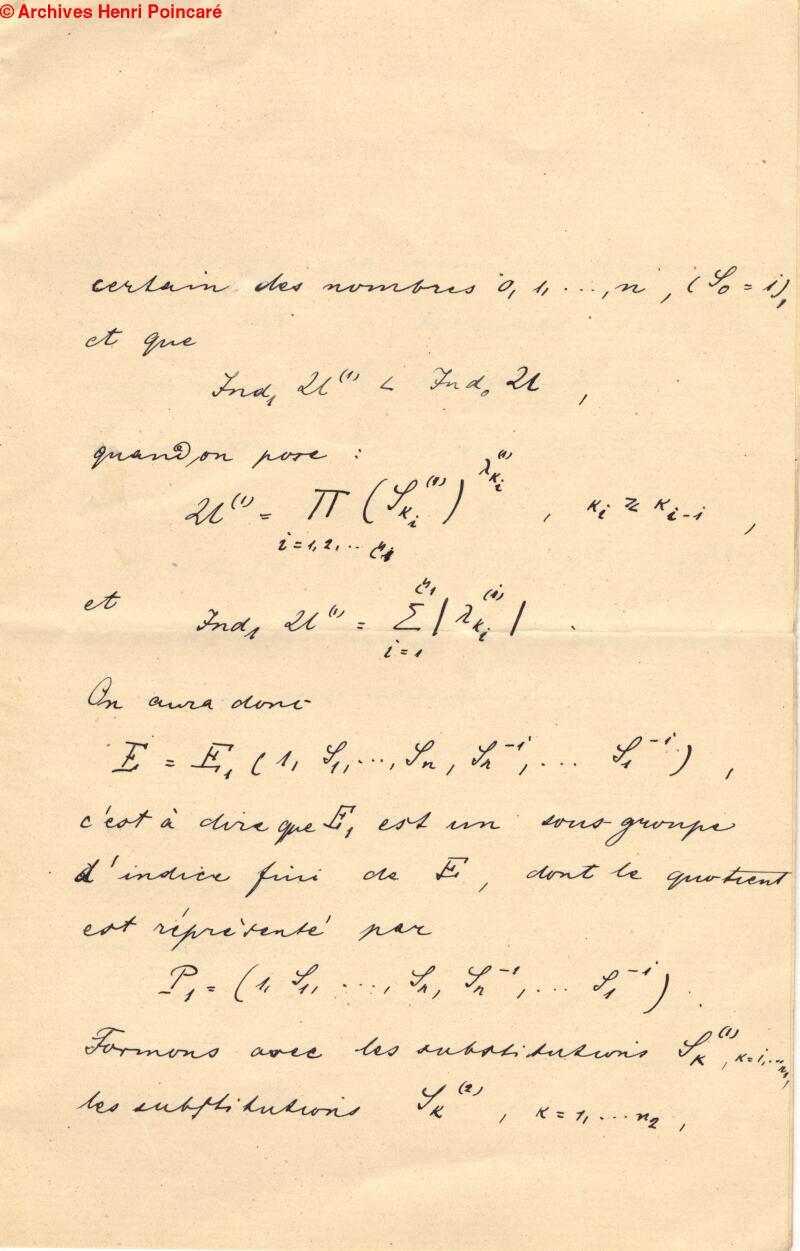 © Archives Henri Poincaré
certain des nombres 0, 1, ..., n, (S₀ = 1),
et que
Ind₁ 𝔘⁽¹⁾ < Ind₀ 𝔘 ,
quand on pose :
𝔘⁽¹⁾ = ∏ (S_{κ_i}⁽¹⁾)^{λ_{κ_i}⁽¹⁾} , κ_i ≷ κ_{i-1} ,
i = 1, 2, ... μ₁
et Ind₁ 𝔘⁽¹⁾ = ∑_{i=1}^{μ₁} | λ_{κ_i}⁽¹⁾ | .
On aura donc
E = E₁ (1, S₁, ..., Sₙ, Sₙ⁻¹, ... S₁⁻¹) ,
c'est à dire que E₁ est un sous-groupe
d'indice fini de E, dont le quotient
est réprésenté par
P₁ = (1, S₁, ..., Sₙ, Sₙ⁻¹, ... S₁⁻¹) .
Formons avec les substitutions S_κ⁽¹⁾, κ=1,...n₁,
les substitutions S_κ⁽²⁾ , κ = 1, ... n₂ ,